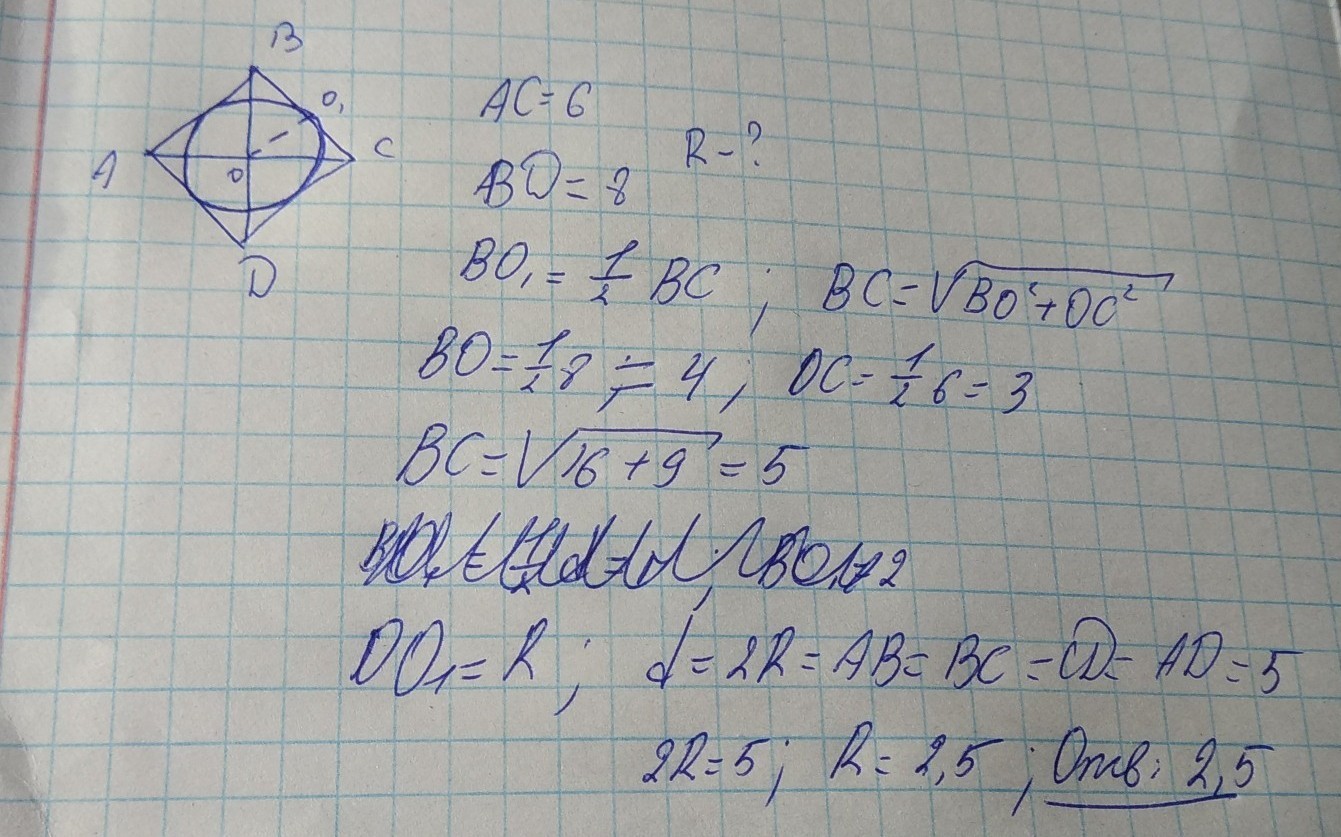 B
O₁
A
C
O
D
AC = 6
R - ?
BD = 8
BO₁ = 1/2 BC ; BC = √(BO² + OC²)
BO = 1/2 8 ; = 4 ; OC = 1/2 6 = 3
BC = √(16 + 9) = 5
OO₁ = R ; d = 2R = AB = BC = CD = AD = 5
2R = 5 ; R = 2,5 ; Отв: 2,5